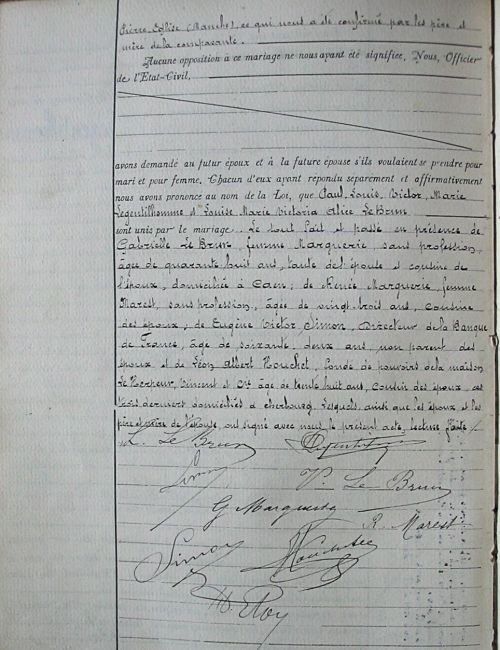 Pierre-Église (Manche), ce qui nous a été confirmé par les père et
mère de la comparante.
Aucune opposition à ce mariage ne nous ayant été signifiée, Nous, Officier
de l'État-Civil,
avons demandé au futur époux et à la future épouse s'ils voulaient se prendre pour
mari et pour femme. Chacun d'eux ayant répondu séparément et affirmativement
nous avons prononcé au nom de la Loi, que Paul, Louis, Victor, Marie
Legentilhomme et Louise Marie Victoria Alice Le Brun
sont unis par le mariage. Le tout fait et passé en présence de
Gabrielle Le Brun, femme Marguerie, sans profession,
âgée de quarante huit ans, tante de l'épouse et cousine de
l'époux, domiciliée à Caen; de Renée Marguerie, femme
Marest, sans profession, âgée de vingt trois ans, cousine
des époux; de Eugène Victor Simon, Directeur de la Banque
de France, âgé de soixante-deux ans, non parent des
époux et de Léon Albert Houchet, fondé de pouvoirs de la maison
Vincent et Cie âgé de trente huit ans, cousin des époux, ces
trois derniers domiciliés à Cherbourg. Lesquels, ainsi que les époux et les
père et mère de l'épouse, ont signé avec nous le présent acte, lecture faite.
L. Le Brun
Simon
V. Le Brun
G Marguerie
R. Marest
Simon